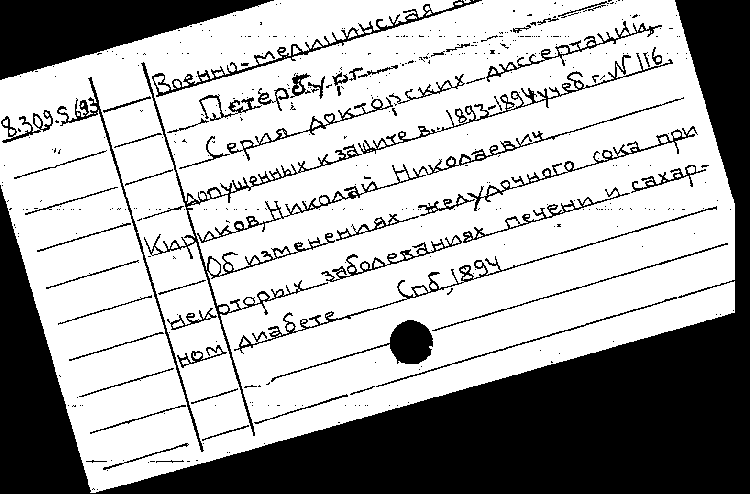 8.309.5.693
Военно-медицинская
Петербург.
Серия докторских диссертаций,
допущенных к защите в... 1893-1894 учеб. г. N 116.
Кириков, Николай Николаевич.
Об изменениях желудочного сока при
некоторых заболеваниях печени и сахар-
ном диабете. Спб, 1894